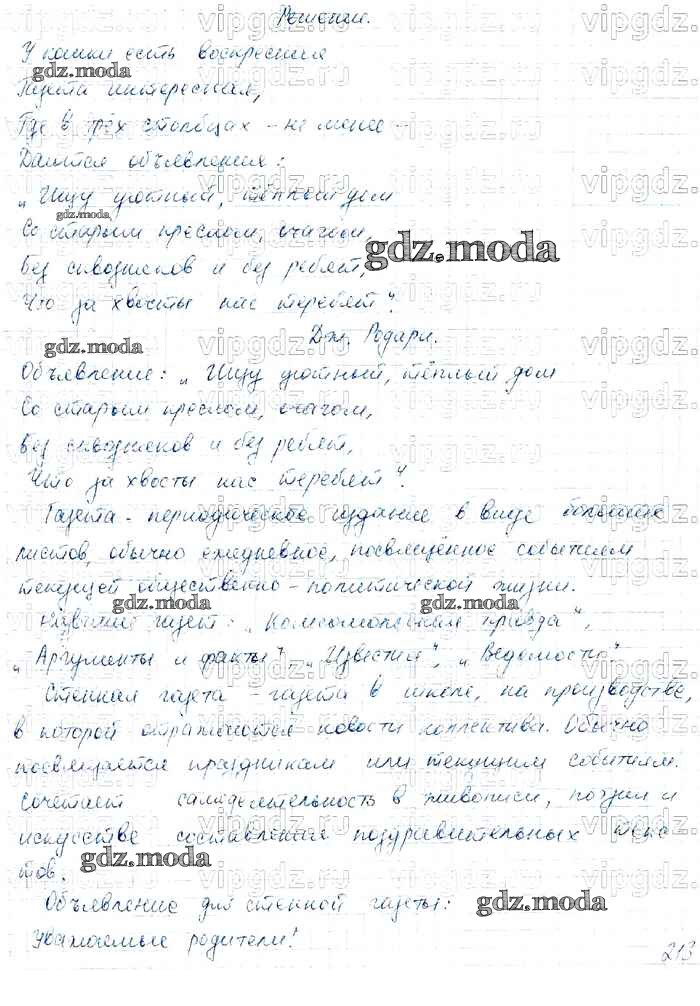 Решение.
У кошки есть воскресная
Газета интересная,
Где в трёх столбцах - не мене -
Даются объявления:
„Ищу уютный, тёплый дом
Со старым креслом, очагом,
Без сквозняков и без ребят,
Что за хвосты нас теребят“.
Дж. Родари.
Объявление: „Ищу уютный, тёплый дом
Со старым креслом, очагом,
Без сквозняков и без ребят,
Что за хвосты нас теребят“.
Газета - периодическое издание в виде больших
листов, обычно ежедневное, посвящённое событиям
текущей общественно-политической жизни.
Название газет: „Комсомольская правда“,
„Аргументы и факты“, „Известия“, „Ведомости“
Стенная газета - газета в школе, на производстве,
в которой отражаются новости коллектива. Обычно
посвящается праздникам или текущим событиям.
Сочетает самодеятельность в живописи, поэзии и
искусстве составления поздравительных текс
тов.
Объявление для стенной газеты:
Уважаемые родители!
213
gdz.moda
gdz.moda
gdz.moda
gdz.moda
gdz.moda
gdz.moda
gdz.moda
gdz.moda
vipgdz.ru